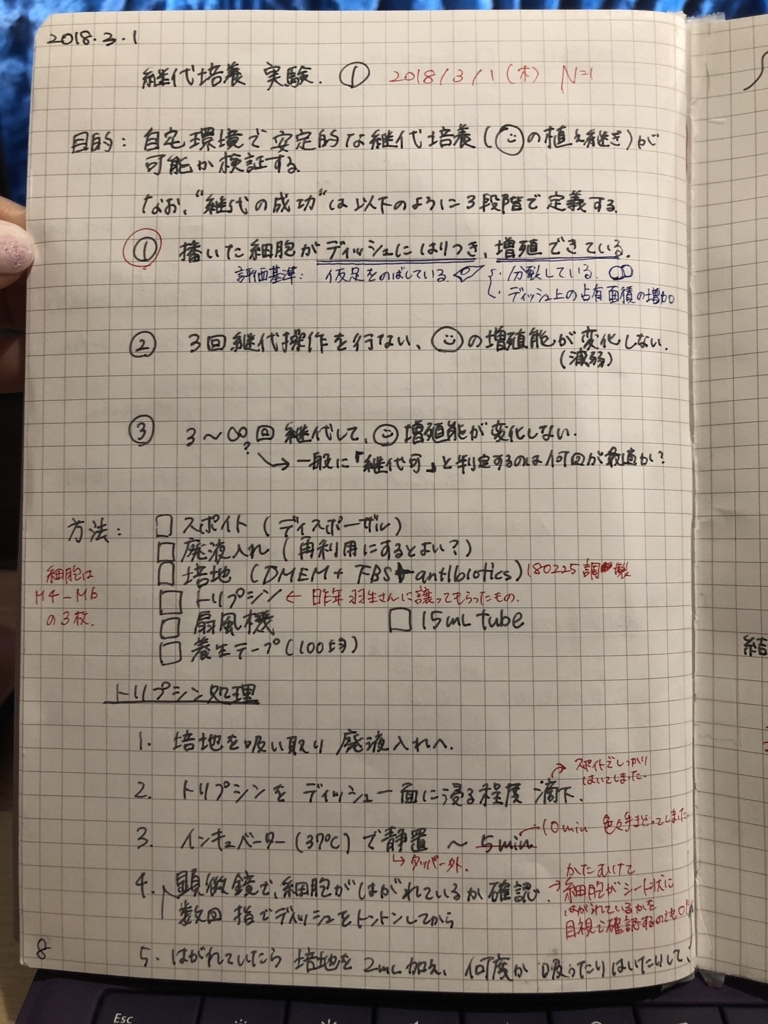 2018.3.1
継代培養 実験. ① 2018/3/1(木) N=1
目的: 自宅環境で安定的な継代培養(の植え継ぎ)が
可能か検証する.
なお,"継代の成功"は以下のように3段階で定義する.
① 播いた細胞がディッシュにはりつき、増殖できている.
評価基準: 仮足をのばしている
・分裂している.
・ディッシュ上の占有面積の増加。
② 3回継代操作を行ない、の増殖能が変化しない.
(減弱)
③ 3〜∞回 継代して、増殖能が変化しない.
?
→ 一般に「継代可」と判定するのは何回が最適か?
方法: スポイト (ディスポーザル)
廃液入れ (再利用にするとよい?)
培地 (DMEM + FBS + antibiotics) 180225 調製
細胞は
M4-M6
の3枚.
トリプシン ← 昨年 羽生さんに譲ってもらったもの.
扇風機 15mL tube
養生テープ(100均)
トリプシン処理
1. 培地を吸い取り 廃液入れへ.
2. トリプシンを ディッシュ一面に浸る程度 滴下.
→スポイトでしっかり
はいてしまった.
3. インキュベーター(37℃)で静置 〜 5min
→10min 色々手まどってしまった
→タッパー外.
4. 顕微鏡で、細胞がはがれているか確認.
数回 指でディッシュをトントンしてから
→かたむけて
細胞がシート状に
はがれているかを
目視で確認するのも〇
5. はがれていたら 培地を 2mL加え、何度か 吸ったりはいたりして、
8
結
Esc